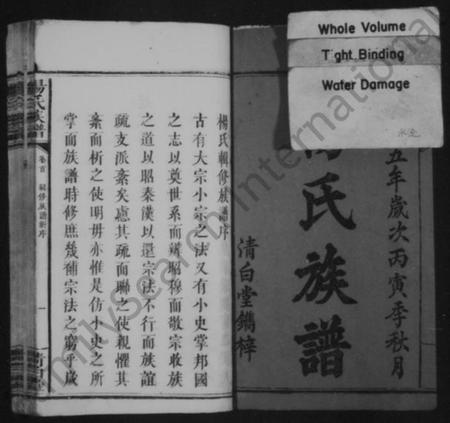 Whole Volume
Tight Binding
Water Damage
水漬
五年歲次丙寅季秋月
氏族譜
清白堂鐫梓
楊氏輯修族譜序
古有大宗小宗之法又有小史掌邦國
之志以奠世系而辨昭穆而敬宗收族
之道以昭秦漢以還宗法不行而族誼
疏支派紊矣慮其疏而聯之使親懼其
紊而析之使明毋亦惟是仿小史之所
掌而族譜時修庶幾補宗法之窮乎歲
楊氏族譜
卷首
修族譜新序
一
FamilySearch International